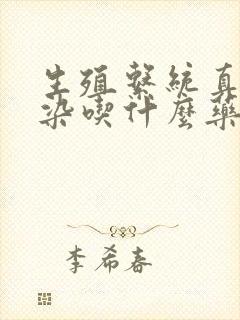 生殖繫統真
染喫什麽藥
李希春